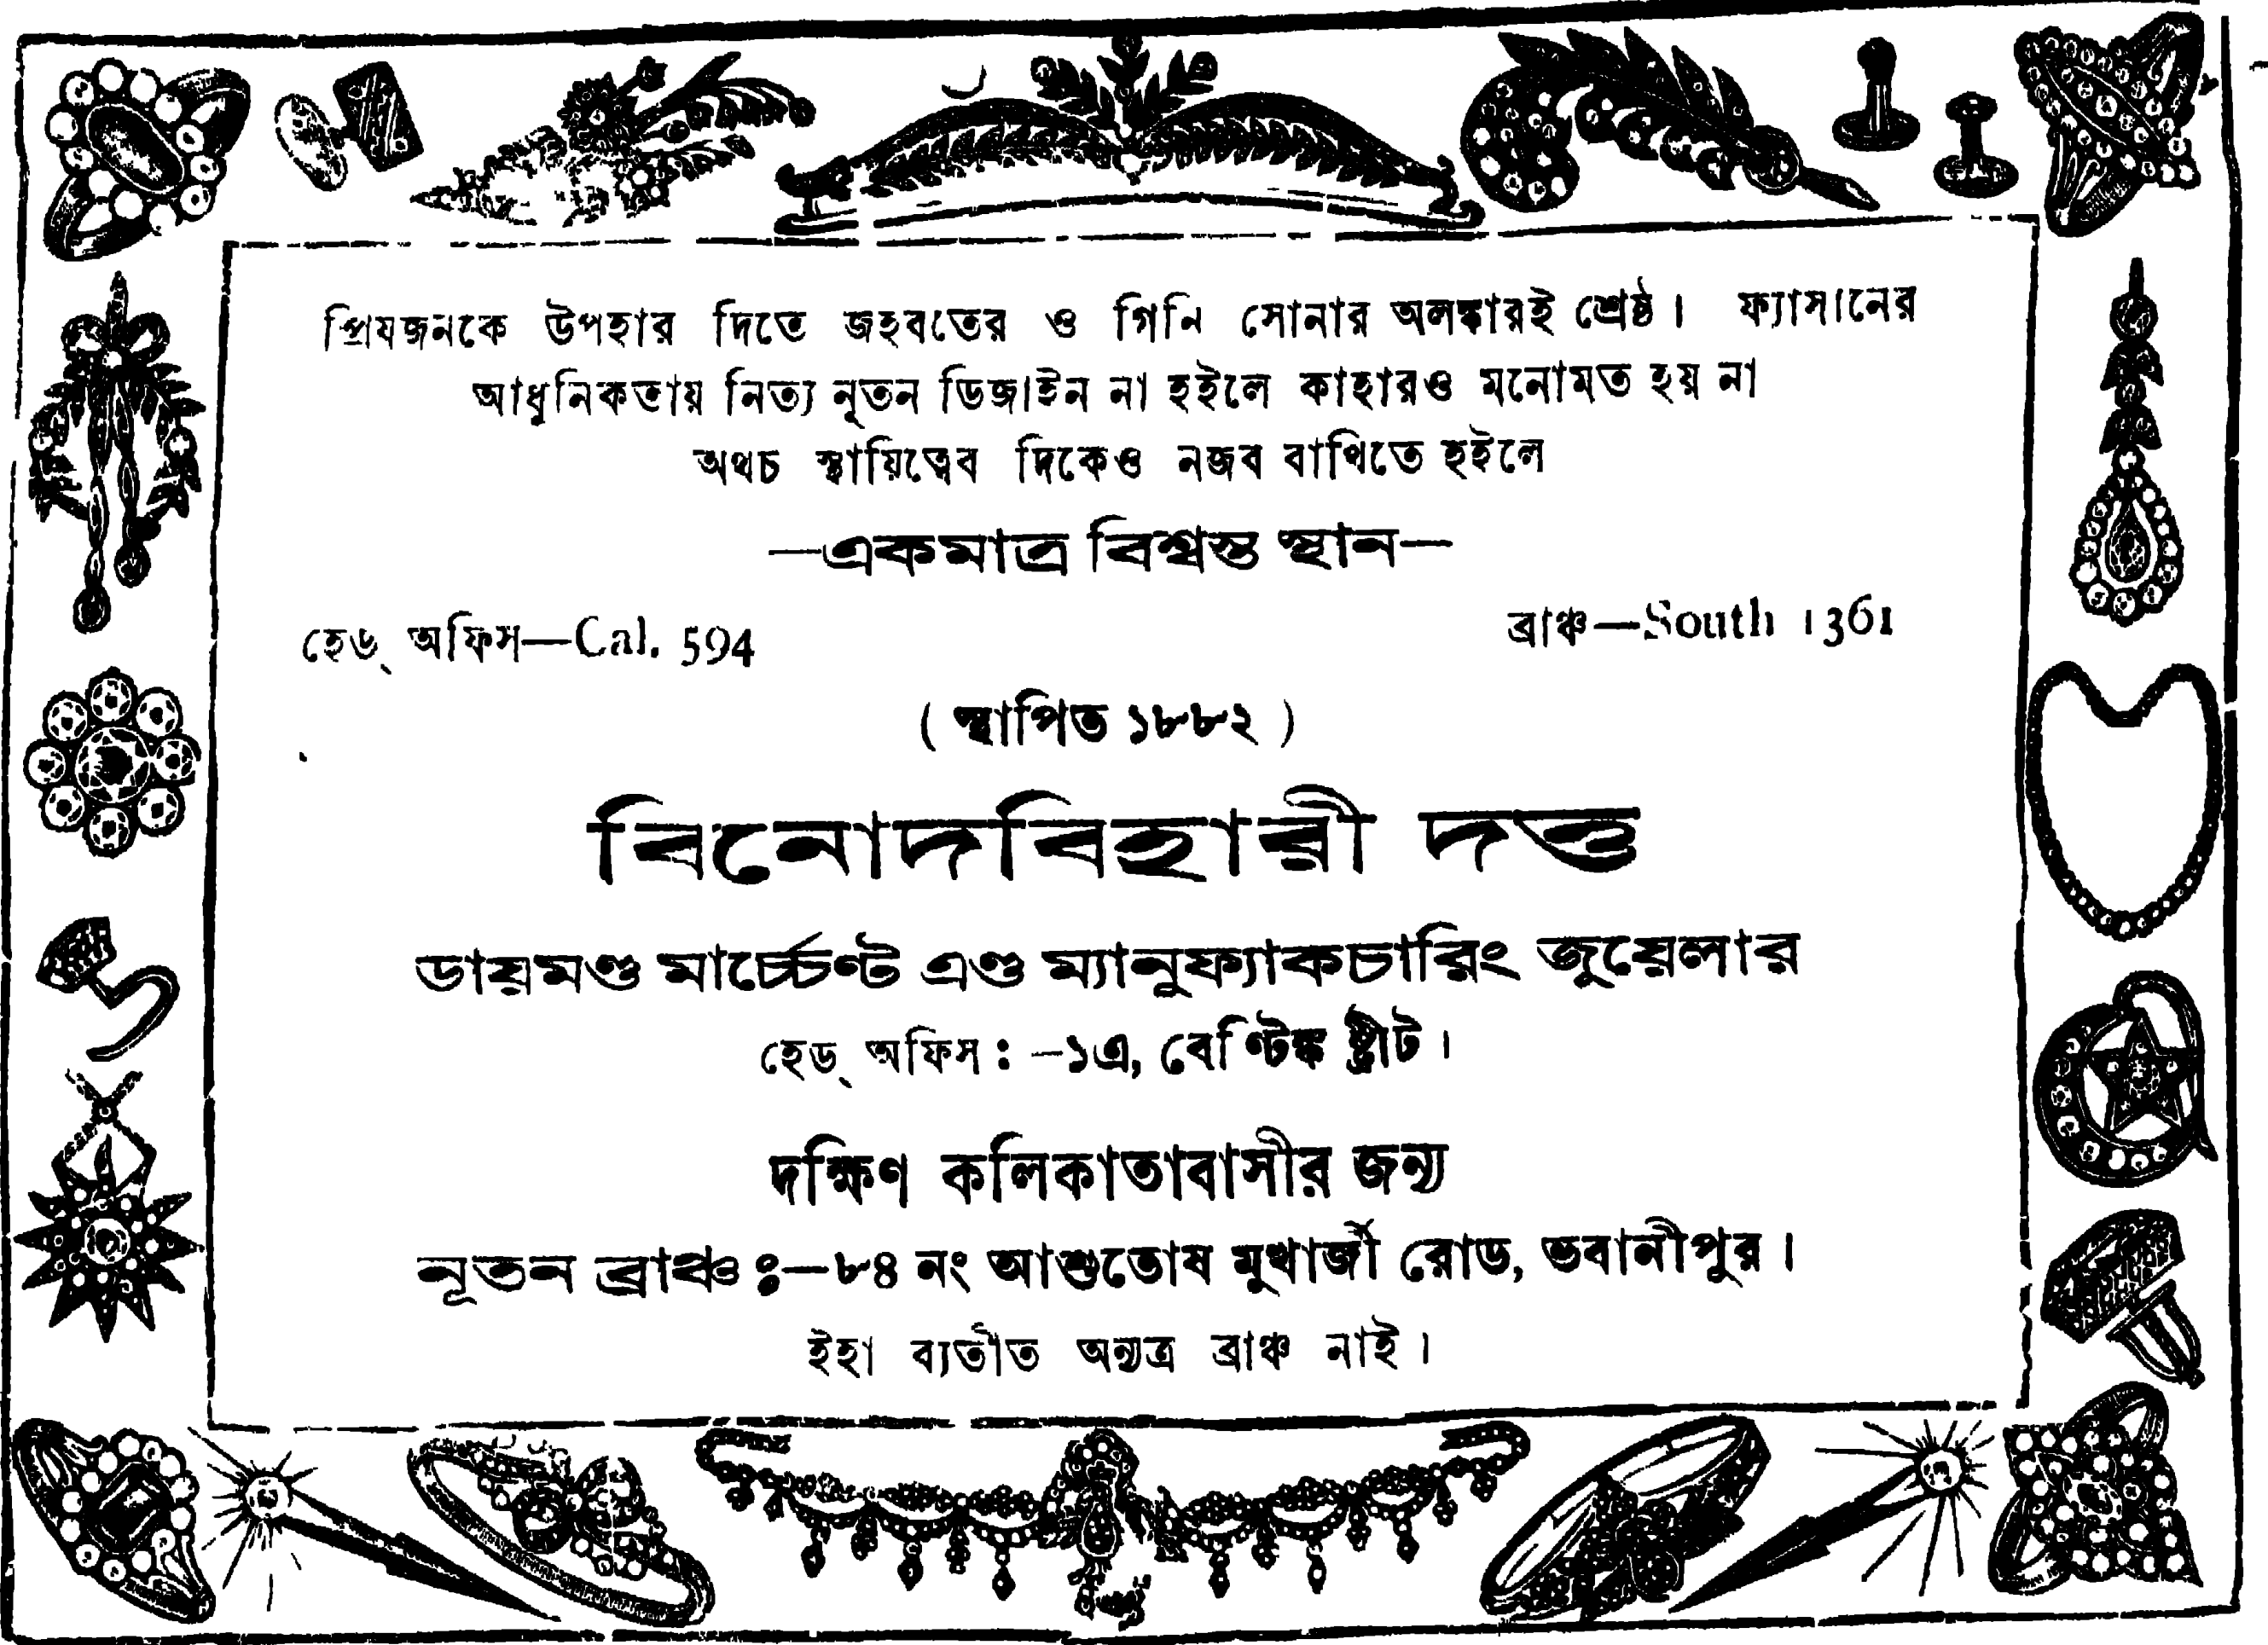 প্রিযজনকে উপহার দিতে জহবতের ও গিনি সোনার অলঙ্কারই শ্রেষ্ঠ। ফ্যাসানের
আধুনিকতায় নিত্য নূতন ডিজাইন না হইলে কাহারও মনোমত হয় না
অথচ স্থায়িত্বেব দিকেও নজব বাখিতে হইলে
—একমাত্র বিশ্বস্ত স্থান—
হেড্ অফিস—Cal. 594
ব্রাঞ্চ—South 1361
( স্থাপিত ১৮৮২ )
বিনোদবিহারী দত্ত
ডায়মণ্ড মার্চ্চেণ্ট এণ্ড ম্যানুফ্যাকচারিং জুয়েলার
হেড্ অফিস :—১এ, বেণ্টিঙ্ক ষ্ট্রীট।
দক্ষিণ কলিকাতাবাসীর জন্য
নূতন ব্রাঞ্চ :—৮৪ নং আশুতোষ মুখার্জী রোড, ভবানীপুর।
ইহা ব্যতীত অন্যত্র ব্রাঞ্চ নাই।